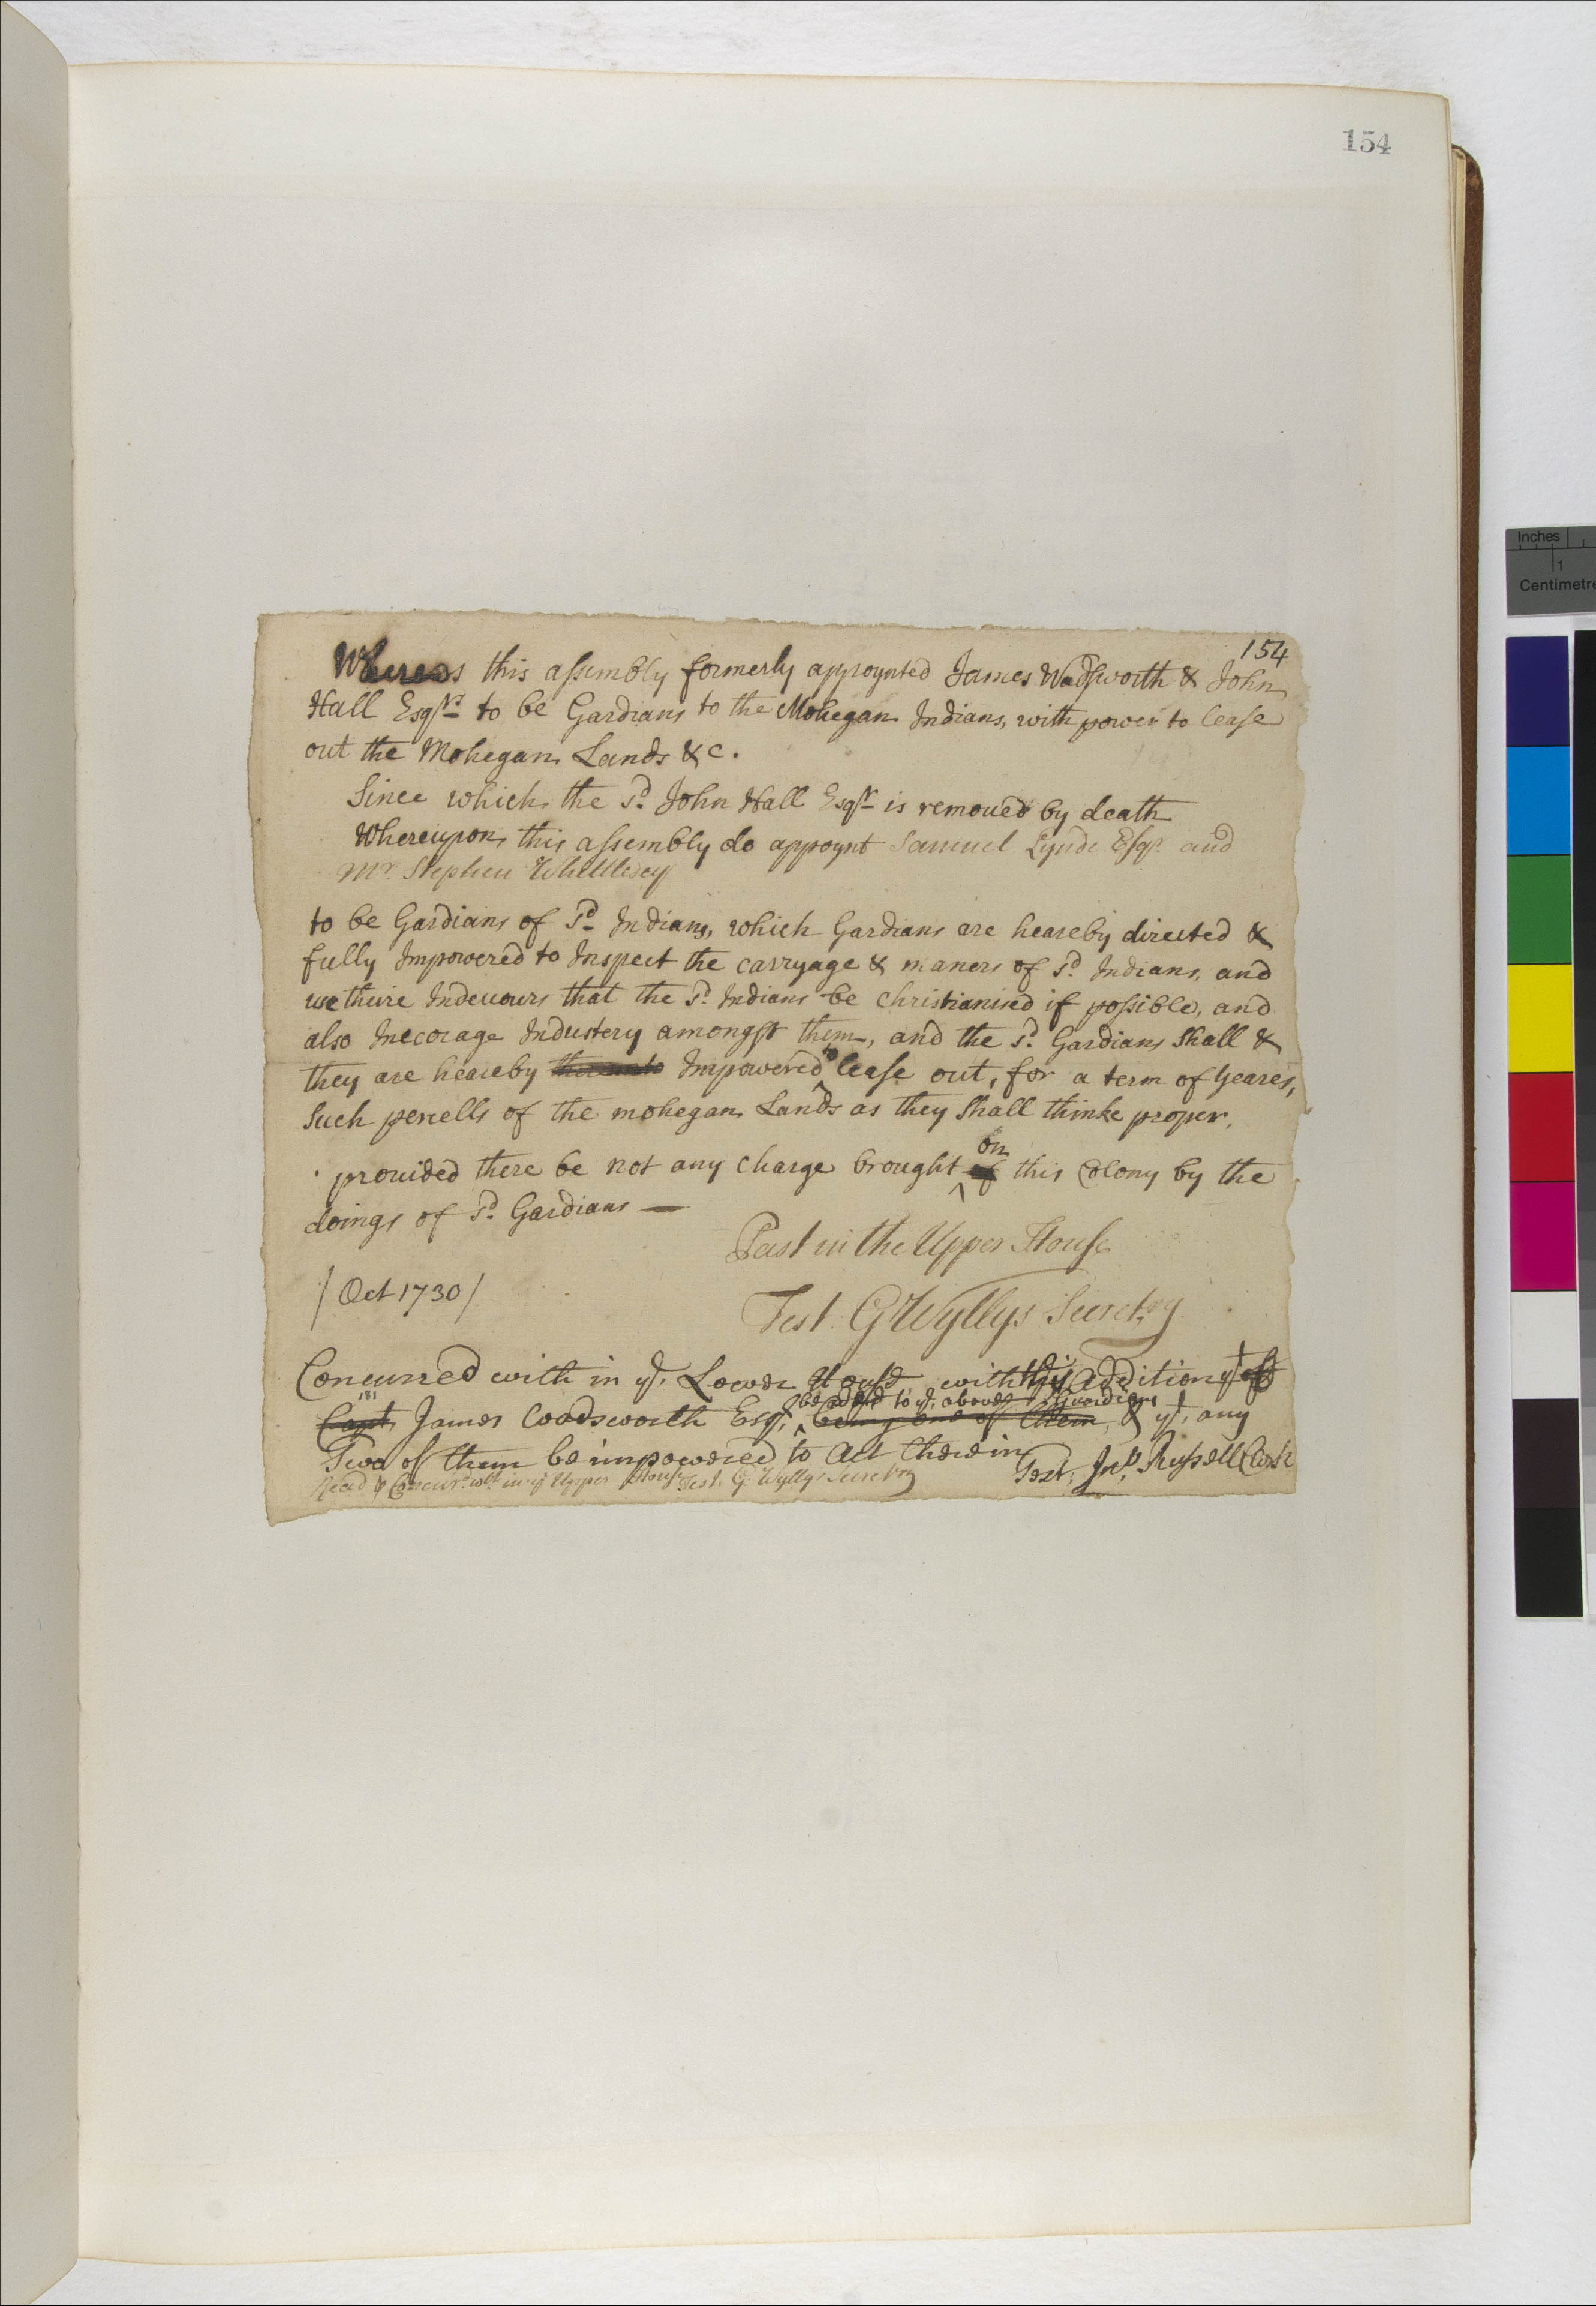 154
154
Whereas this assembly formerly appoynted James Wadsworth & John
Hall Esqrs to be Gardians to the Mohegan Indians, with power to lease
out the Mohegan Lands &c.
Since which the sd John Hall Esqr is remoued by death
Whereupon this assembly do appoynt Samuel Lynde Esqr. and
Mr. Stephen Whittlesey
to be Gardians of sd Indians, which Gardians are heareby directed &
fully Impowered to Inspect the carryage & maners of sd Indians, and
use theire Indeuours that the sd Indians be christianised if possible, and
also Inecorage Industery amongst them, and the sd Gardians shall &
they are heareby thereunto Impowered to lease out, for a term of yeares,
such percells of the mohegan Lands as they shall thinke proper,
prouided there be not any charge brought of on this Colony by the
doings of sd Gardians —
Past in the Upper House
/ Oct 1730 /
Test. G Wyllys Secretry
Concurred with in ye. Lower House with this addition yt
Capt James Wadsworth Esqr, be added to ye. above sd Guardians being one of them, & yt, any
Two of them be impowered to Act therein
Test. Jno. Russell Clerk
Read & Concurd. wth in ye Upper House Test. G Wyllys Secretry
Inches
1
Centimetre